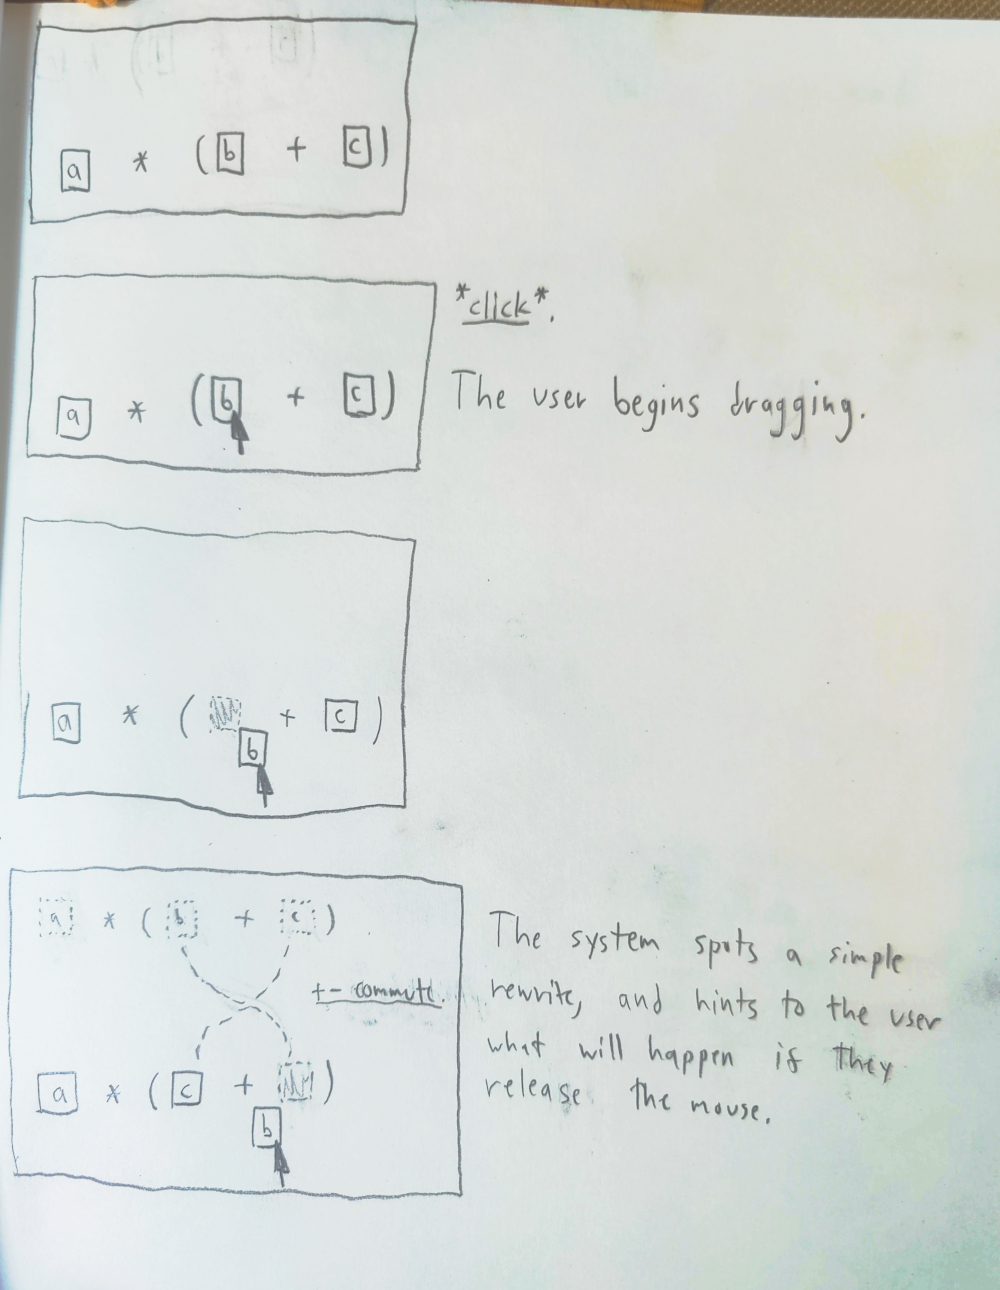 a * (b + c)
*click*.
a * (b + c)
The user begins dragging.
a * ( + c)
b
a * (b + c)
+- commute.
a * (c + )
b
The system spots a simple
rewrite, and hints to the user
what will happen if they
release the mouse.